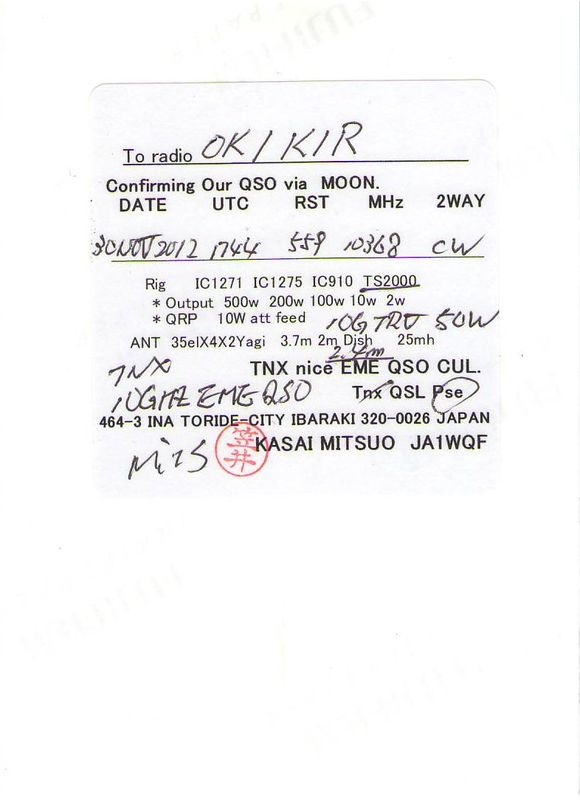 To radio OK1KIR
Confirming Our QSO via MOON.
DATE UTC RST MHz 2WAY
30NOV2012 1744 559 10368 CW
Rig IC1271 IC1275 IC910 TS2000
* Output 500w 200w 100w 10w 2w
* QRP 10W att feed 10G TRV 50W
ANT 35elX4X2Yagi 3.7m 2m Dish 25mh
2.4m
TNX TNX nice EME QSO CUL.
10GHZ EME QSO Tnx QSL Pse
464-3 INA TORIDE-CITY IBARAKI 320-0026 JAPAN
Mits 笠井 KASAI MITSUO JA1WQF